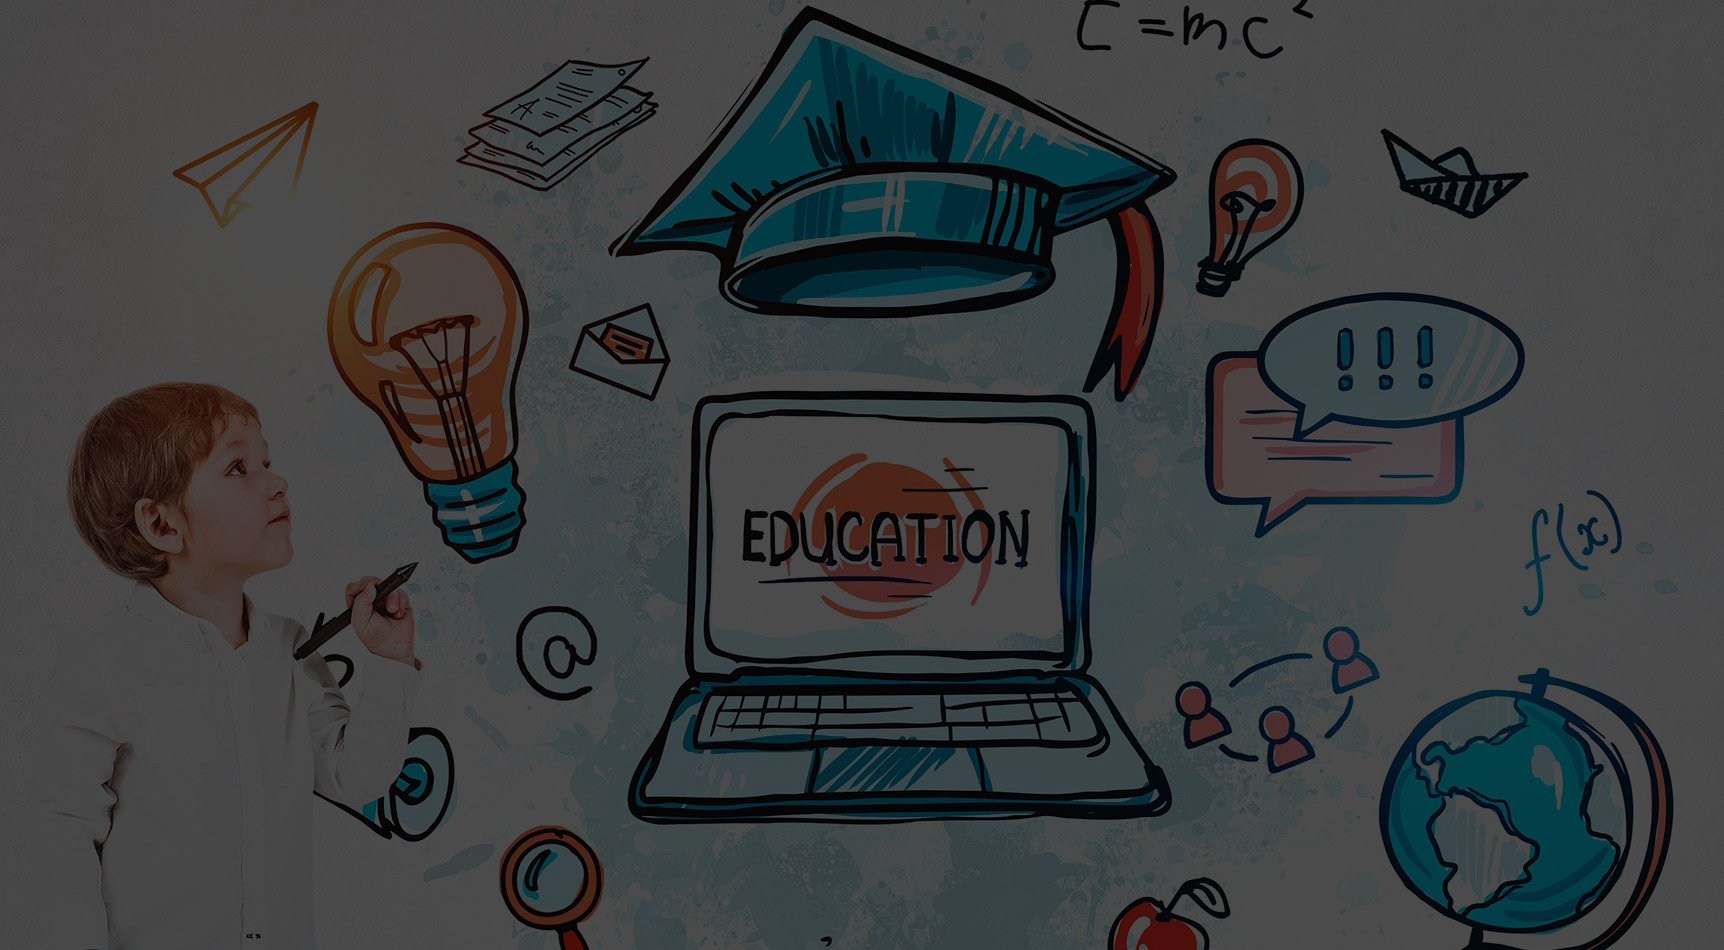 E=mc²
A
!!!
EDUCATION
f(x)
@